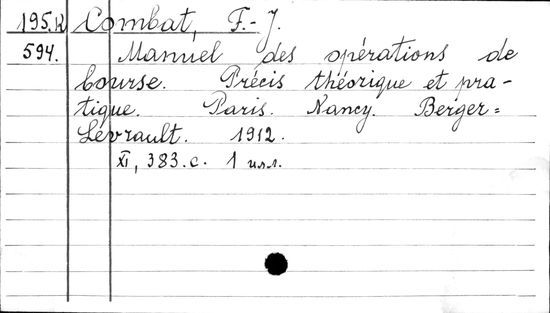 195.К Combat, F.-J.
594. Manuel des opérations de
bourse. Précis théorique et pra-
tique. Paris. Nancy. Berger=
Levrault. 1912.
XI, 383.с. 1 илл.